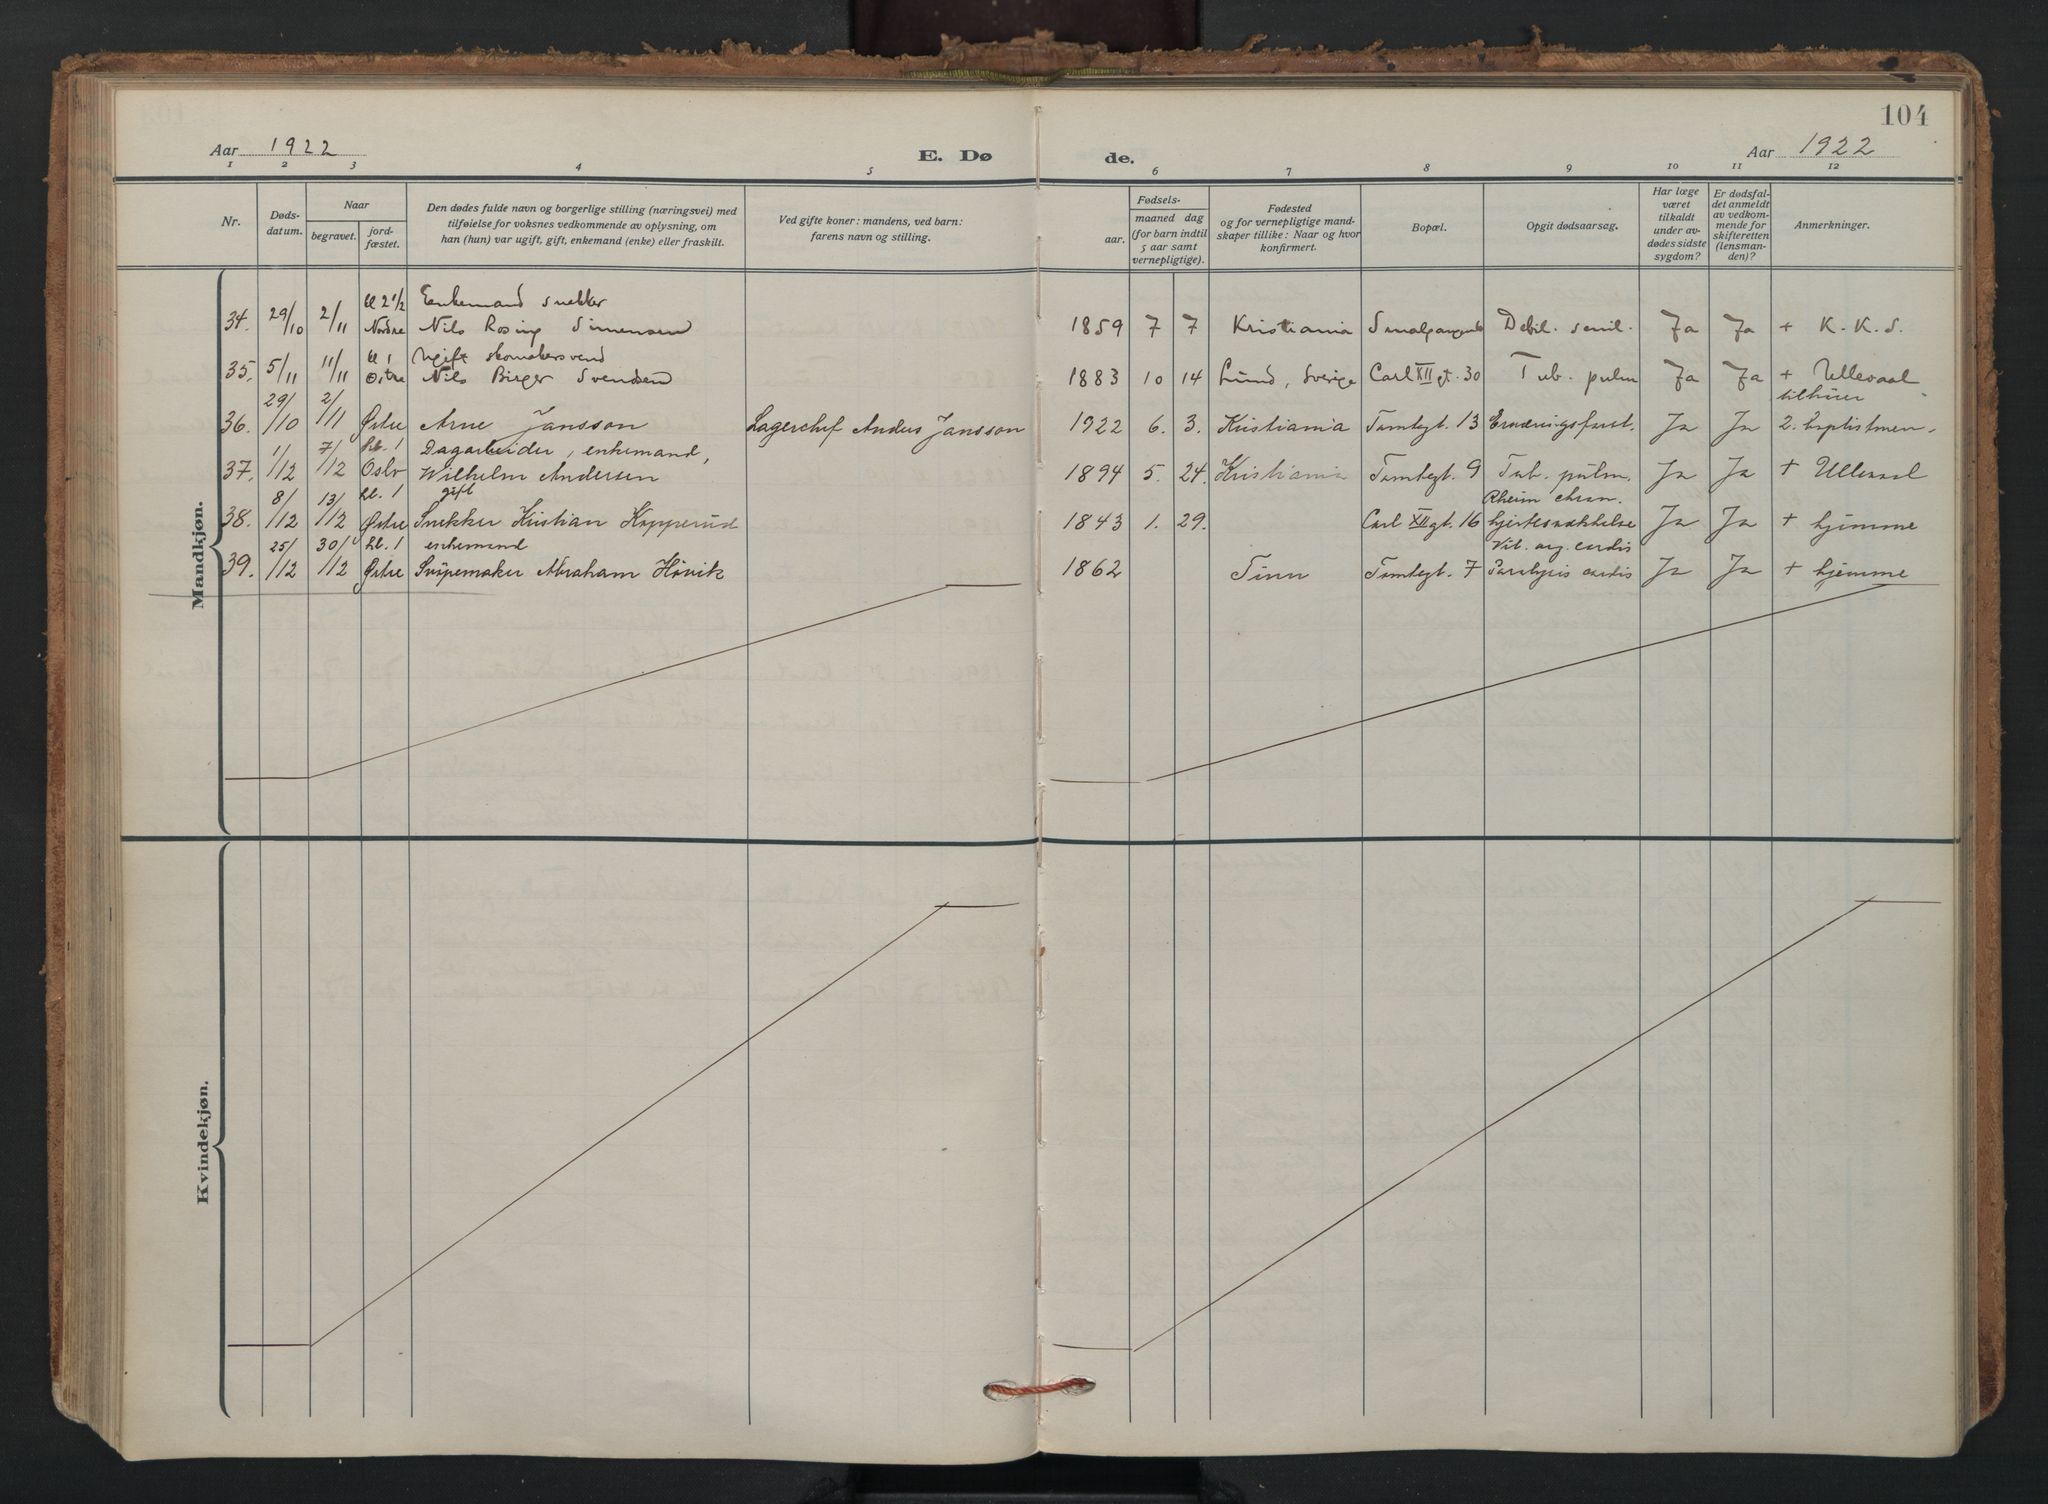 104
Aar 1922
E. Dø
de.
Aar 1922
1 2 3 4 5 6 7 8 9 10 11 12
Nr.
Døds-
datum.
Naar
begravet.
jord-
fæstet.
Den dødes fulde navn og borgerlige stilling (næringsvei) med
tilføielse for voksnes vedkommende av oplysning, om
han (hun) var ugift, gift, enkemand (enke) eller fraskilt.
Ved gifte koner: mandens, ved barn:
farens navn og stilling.
Fødsels-
aar.
maaned dag
(for barn indtil
5 aar samt
vernepligtige).
Fødested
og for vernepligtige mand-
skaper tillike: Naar og hvor
konfirmert.
Bopæl.
Opgit dødsaarsag.
Har læge
været
tilkaldt
under av-
dødes sidste
sygdom?
Er dødsfal-
det anmeldt
av vedkom-
mende for
skifteretten
(lensman-
den)?
Anmerkninger.
Mandkjøn.
kl 2 1/2 Enkemand snekker
34. 29/10 2/11 Nordre Nils Rosing Simensen 1859 7 7 Kristiania Debil. senil. Ja Ja + K. K. S.
kl 1 Ugift skomakersvend
35. 5/11 11/11 Østre Nils Birger Svendsen 1883 10 14 Lund, Sverige Carl XII gt. 30 Tub. pulm Ja Ja + Ullevaal
tilhører
36. 29/10 2/11 Østre Arne Jansson Lagerchef Anders Jansson 1922 6. 3. Kristiania Tomtegt. 13 Ernæringsforst. Ja Ja 2. baptistmen.
kl. 1 Dagarbeider, enkemand,
37. 1/12 7/12 Oslo Wilhelm Andersen 1894 5. 24. Kristiania Tomtegt. 9 Tub. pulm. Ja Ja + Ullevaal
kl. 1 gift Rheum chron.
38. 8/12 13/12 Østre Snekker Kristian Kopperud 1843 1. 29. Carl XII gt. 16 hjertesvækkelse Ja Ja + hjemme
kl. 1 enkemand Vit. org. cordis
39. 25/12 30/12 Østre Svøpemaker Abraham Høvik 1862 Tinn Tomtegt. 7 Paralysis cordis Ja Ja + hjemme
Kvindekjøn.